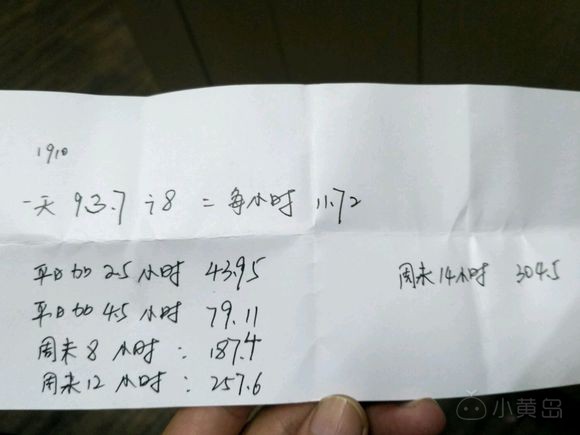 1910
一天 93.7 ÷8 = 每小时 11.72
平日加 2.5 小时 43.95
平日加 4.5 小时 79.11
周末 8 小时 : 187.4
周末 12 小时 : 257.6
周末 14 小时 304.5
小黄岛